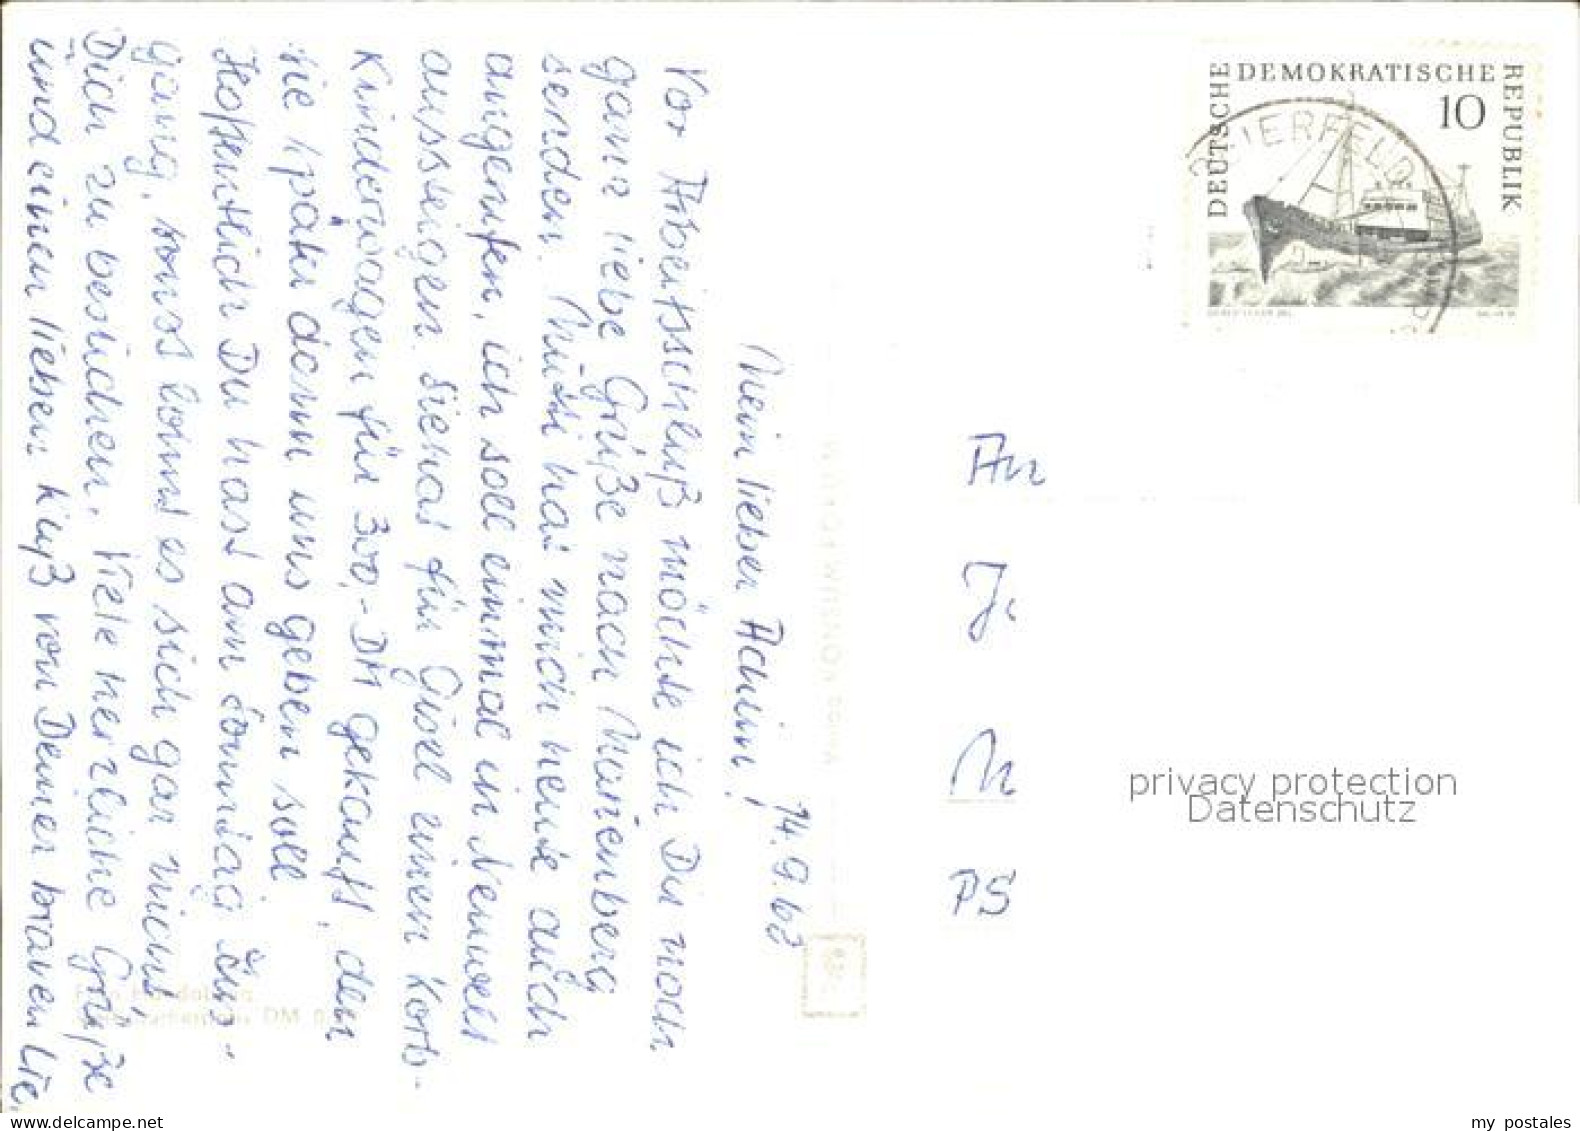 14.9.63
Mein lieber Achim!
Vor Arbeitsschluß möchte ich Dir noch
ganz liebe Grüße nach Marienberg
senden. Mutti hat mich heute auch
angerufen, ich soll einmal in Neuwelt
aussteigen. Sie hat für Gisel einen Korb-
Kinderwagen für 300,- DM gekauft, den
sie später dann uns geben soll
Hoffentlich Du hast am Sonntag Aus-
gang, sonst lohnt es sich gar nicht
Dich zu besuchen. Viele herzliche Grüße
und einen lieben Kuß von Deiner braven
DEUTSCHE DEMOKRATISCHE REPUBLIK
10
BEIERFELD
An
J.
M
PS
privacy protection
Datenschutz
DM
my postales